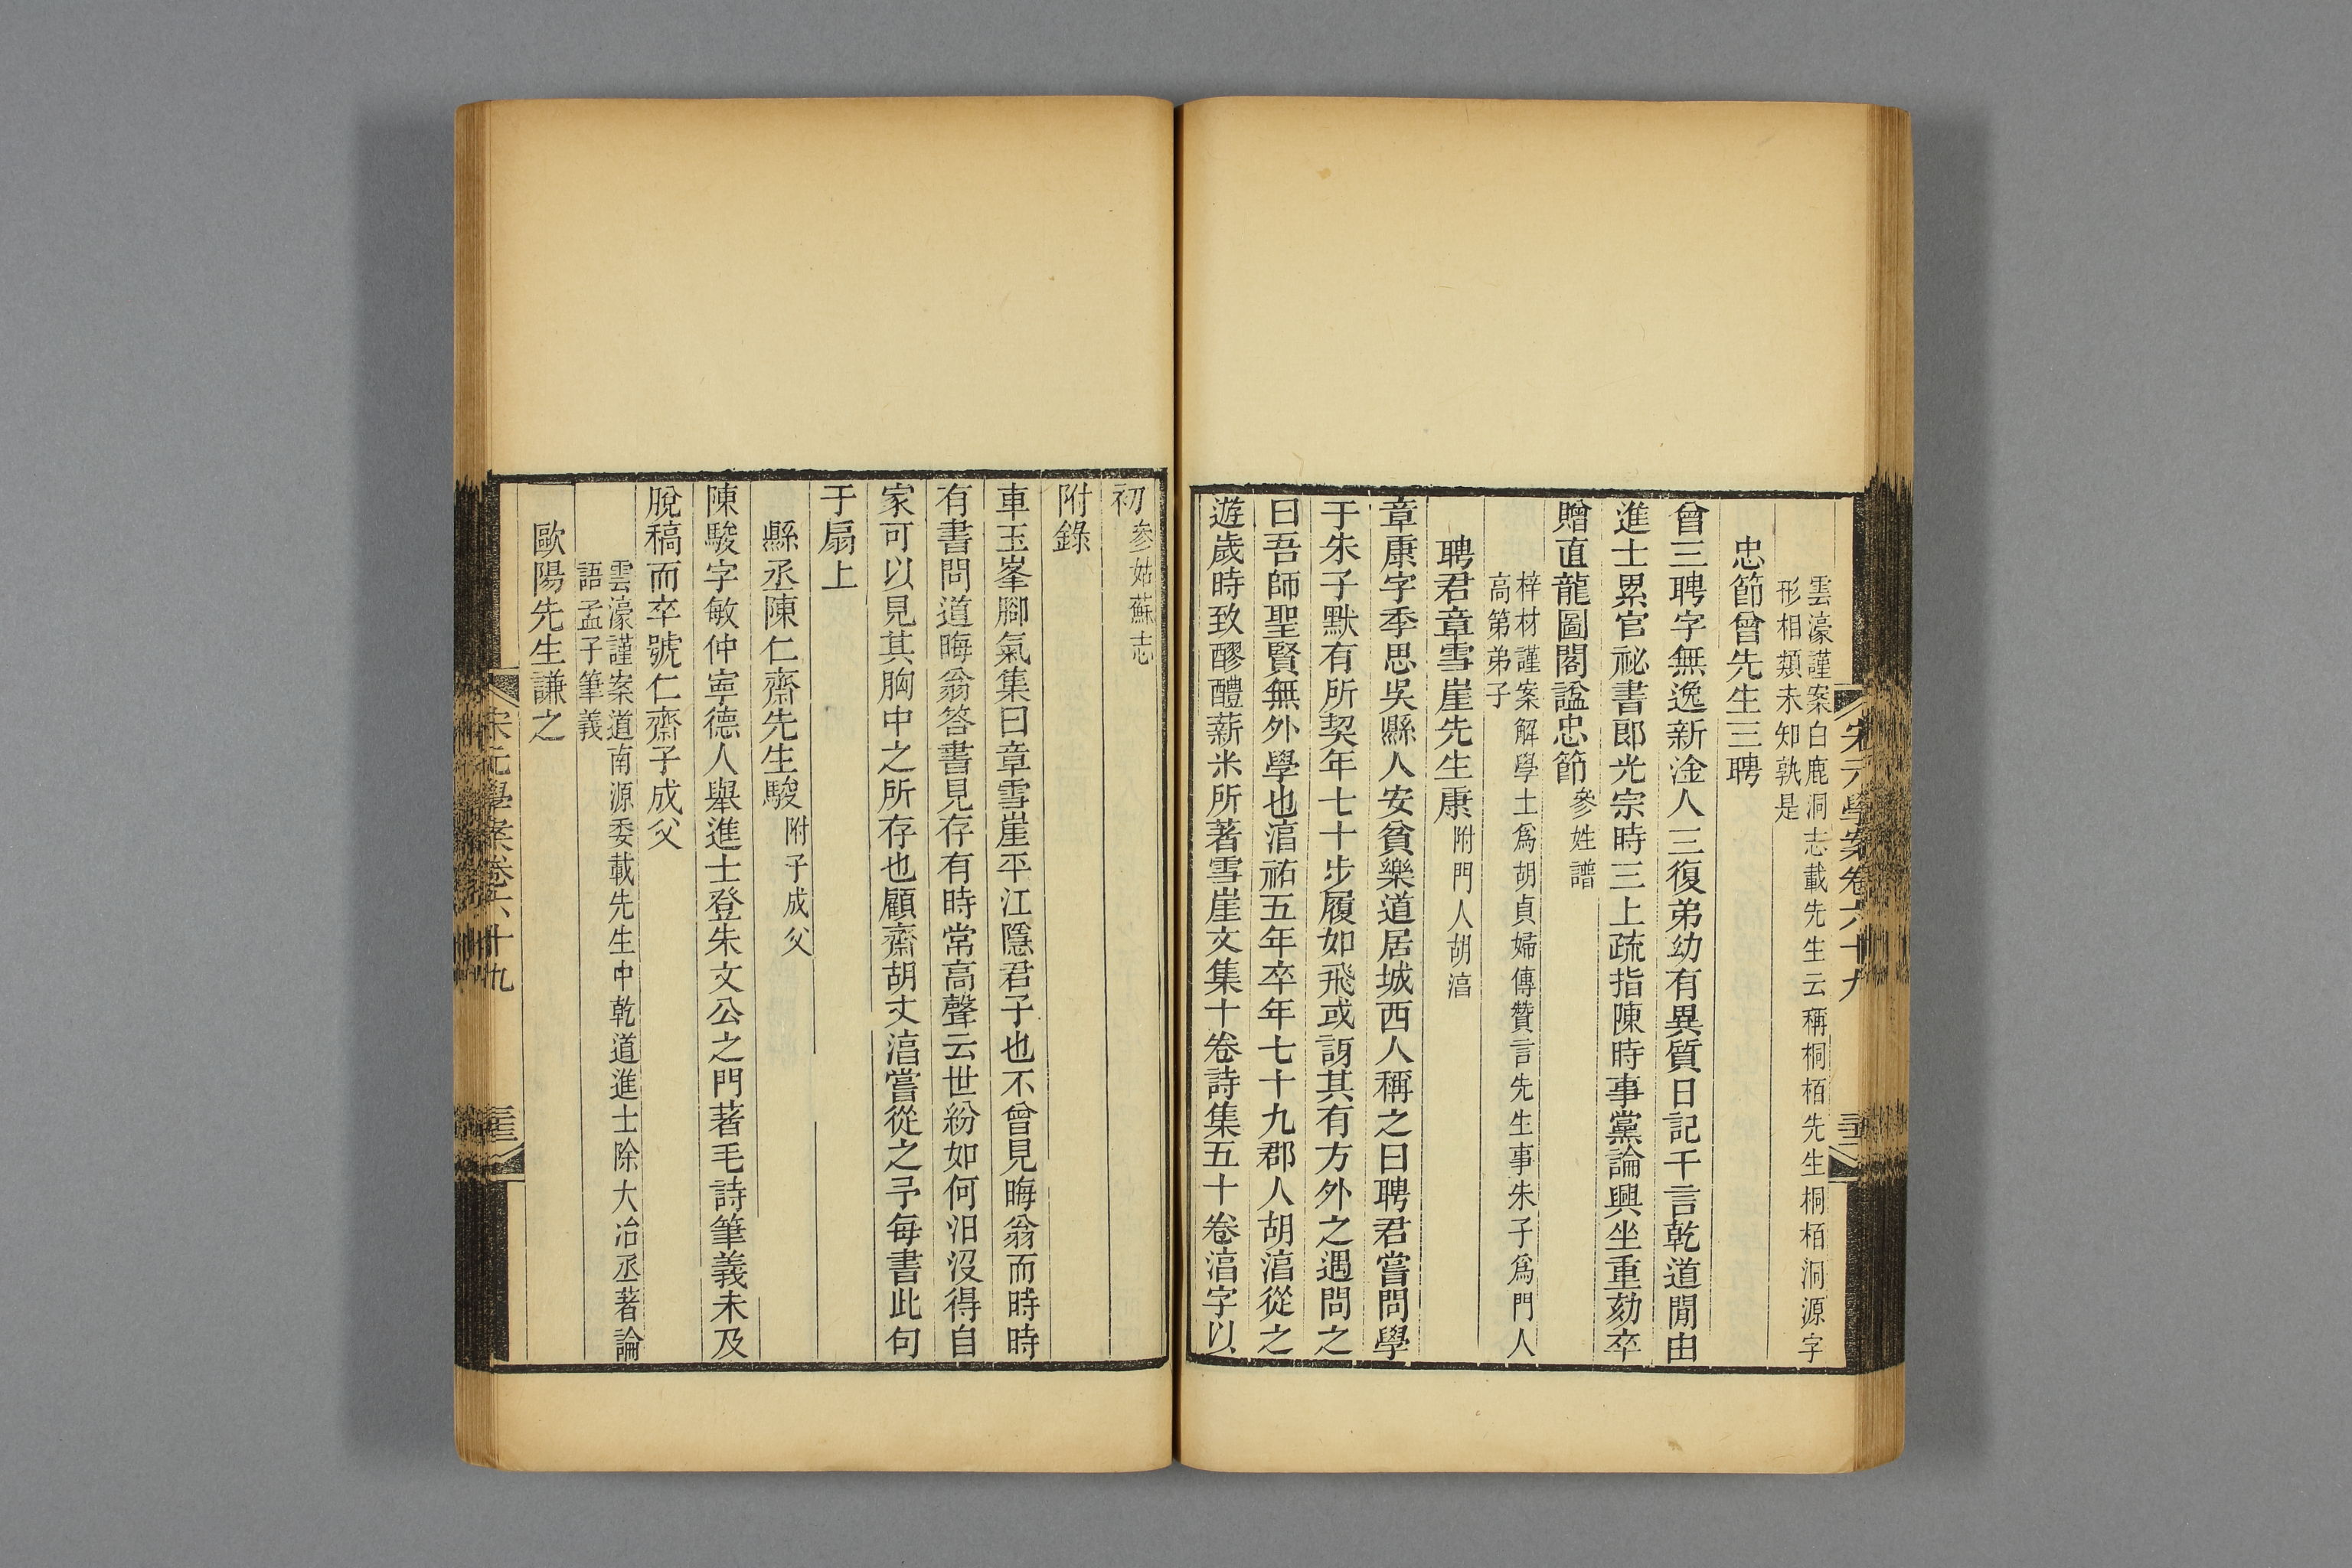 宋元學案卷六十九
雲濠謹案白鹿洞志載先生云稱桐栢先生桐栢洞源字
形相類未知孰是
忠節曾先生三聘
曾三聘字無逸新淦人三復弟幼有異質日記千言乾道間由
進士累官祕書郎光宗時三上疏指陳時事黨論興坐重劾卒
贈直龍圖閣諡忠節參姓譜
梓材謹案解學士爲胡貞婦傳贊言先生事朱子爲門人
高第弟子
聘君章雪崖先生康附門人胡淯
章康字季思吳縣人安貧樂道居城西人稱之曰聘君嘗問學
于朱子默有所契年七十步履如飛或訝其有方外之遇問之
曰吾師聖賢無外學也淯祐五年卒年七十九郡人胡淯從之
遊歲時致醪醴薪米所著雪崖文集十卷詩集五十卷淯字以
初參姑蘇志
附錄
車玉峯腳氣集曰章雪崖平江隱君子也不曾見晦翁而時時
有書問道晦翁答書見存有時常高聲云世紛如何汨沒得自
家可以見其胸中之所存也顧齋胡丈淯嘗從之予每書此句
于扇上
縣丞陳仁齋先生駿附子成父
陳駿字敏仲寧德人舉進士登朱文公之門著毛詩筆義未及
脫稿而卒號仁齋子成父
雲濠謹案道南源委載先生中乾道進士除大冶丞著論
語孟子筆義
歐陽先生謙之
宋元學案卷六十九